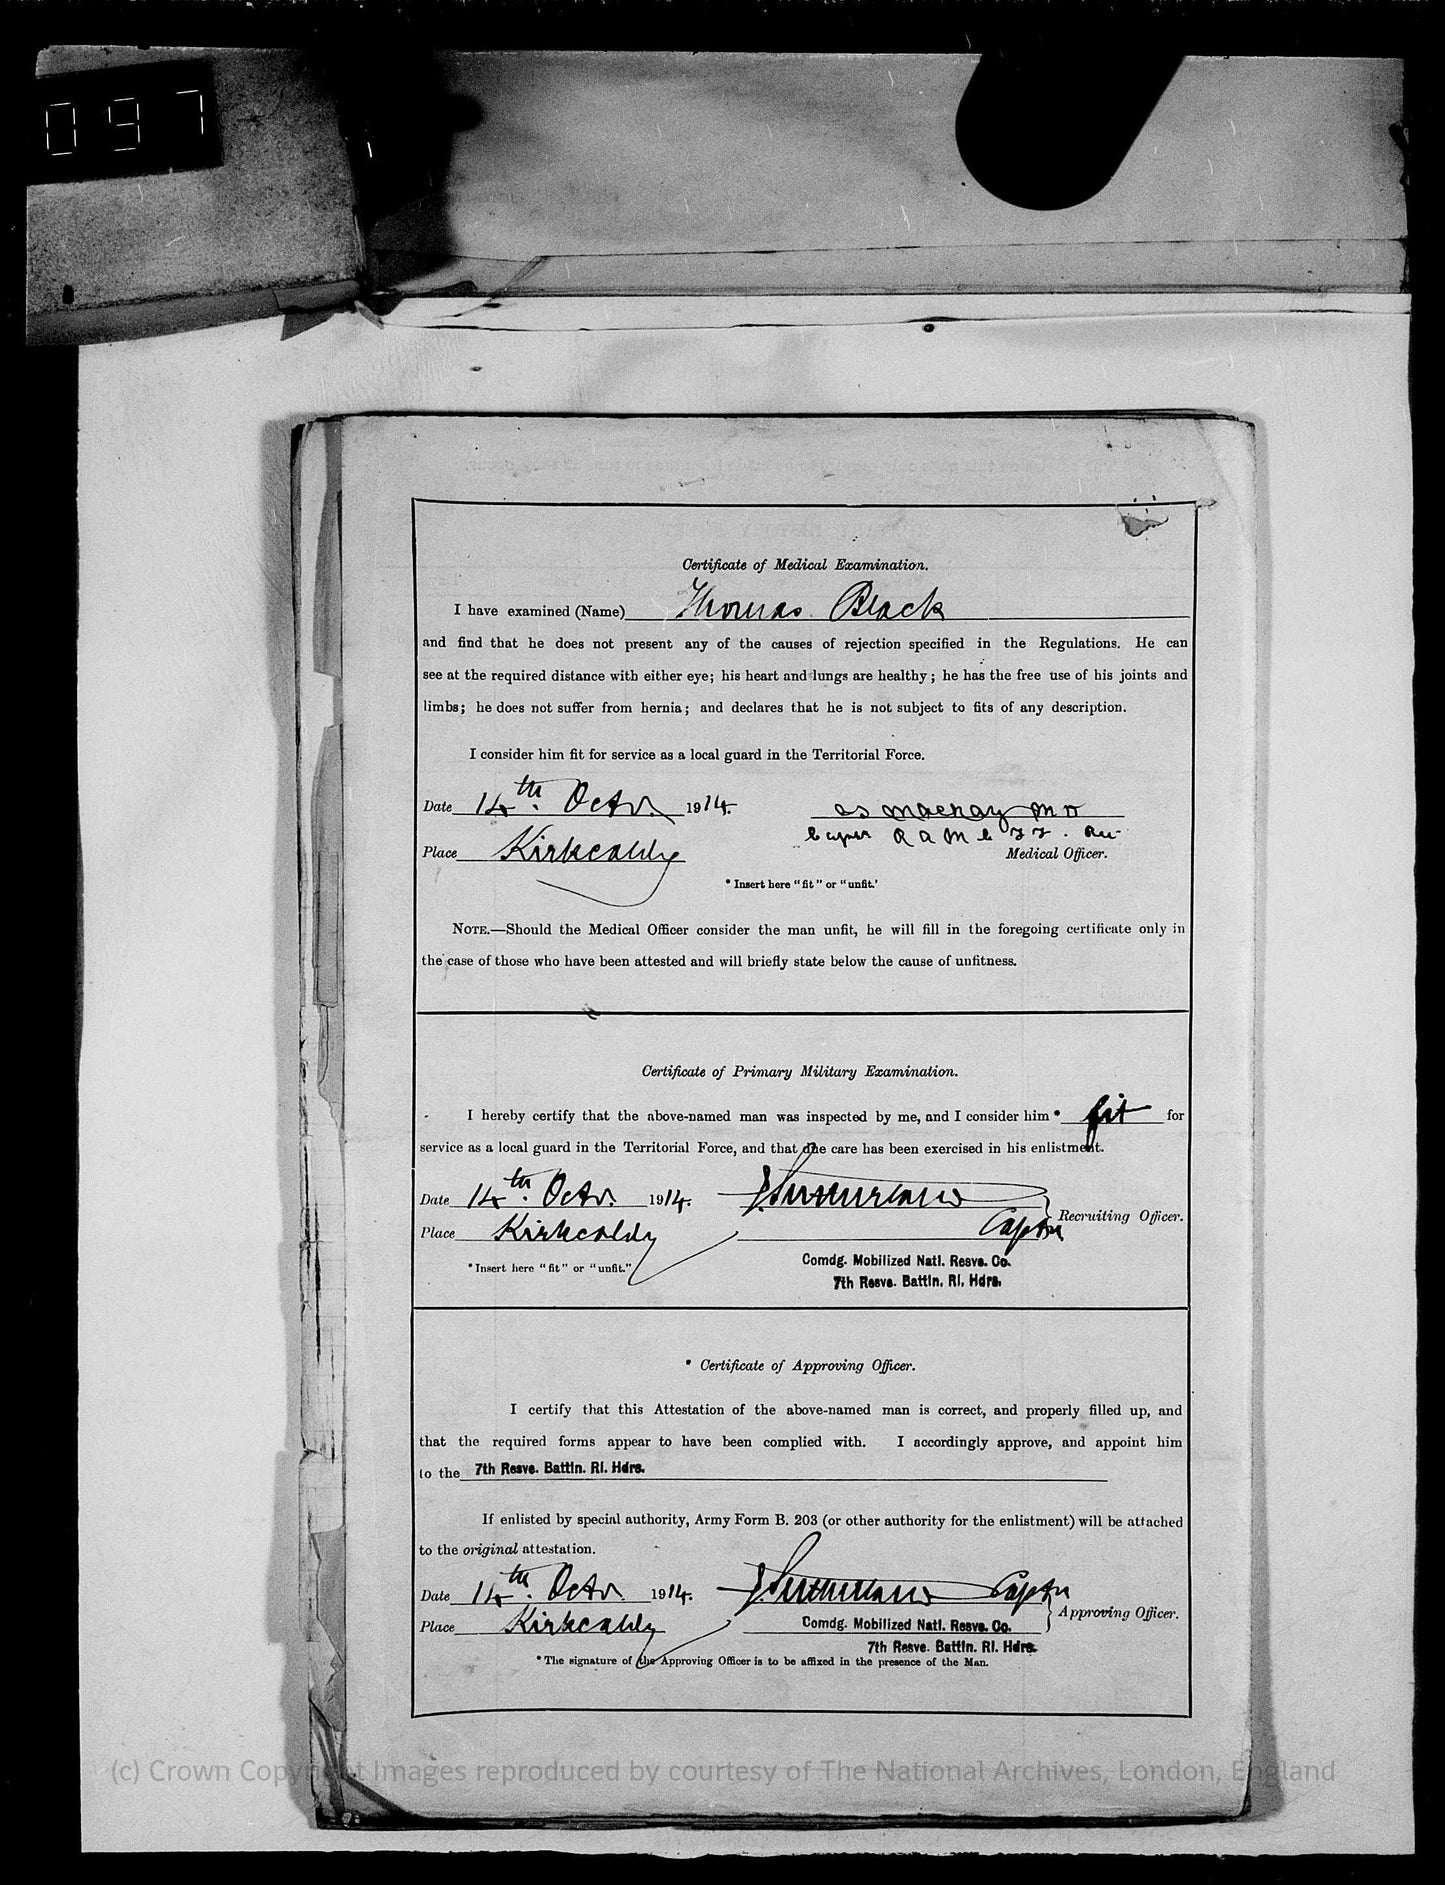 097
Certificate of Medical Examination.
I have examined (Name) Thomas Black
and find that he does not present any of the causes of rejection specified in the Regulations. He can
see at the required distance with either eye; his heart and lungs are healthy; he has the free use of his joints and
limbs; he does not suffer from hernia; and declares that he is not subject to fits of any description.
I consider him fit for service as a local guard in the Territorial Force.
Date 14th. Octr. 1914.
Mackay MD
RAMC
Place Kirkcaldy
Medical Officer.
* Insert here "fit" or "unfit.'
NOTE.—Should the Medical Officer consider the man unfit, he will fill in the foregoing certificate only in
the case of those who have been attested and will briefly state below the cause of unfitness.
Certificate of Primary Military Examination.
I hereby certify that the above-named man was inspected by me, and I consider him * fit for
service as a local guard in the Territorial Force, and that due care has been exercised in his enlistment.
Date 14th. Octr. 1914. J. Sutherland
Recruiting Officer.
Place Kirkcaldy Captn
* Insert here "fit" or "unfit."
Comdg. Mobilized Natl. Resve. Co.
7th Resve. Battln. Rl. Hdrs.
* Certificate of Approving Officer.
I certify that this Attestation of the above-named man is correct, and properly filled up, and
that the required forms appear to have been complied with. I accordingly approve, and appoint him
to the 7th Resve. Battln. Rl. Hdrs.
If enlisted by special authority, Army Form B. 203 (or other authority for the enlistment) will be attached
to the original attestation.
Date 14th. Octr. 1914. J. Sutherland Captn
Approving Officer.
Place Kirkcaldy
Comdg. Mobilized Natl. Resve. Co.
7th Resve. Battln. Rl. Hdrs.
* The signature of the Approving Officer is to be affixed in the presence of the Man.
(c) Crown Copyright Images reproduced by courtesy of The National Archives, London, England